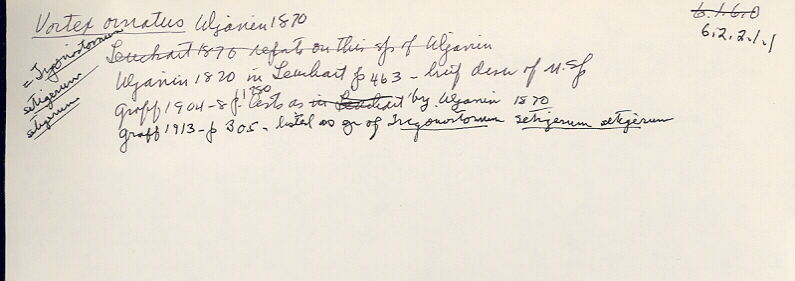 Vortex ornatus Uljanin 1870
6.1.6.0
6.2.2.1.1
= Trigonostomum setigerum setigerum
Leuckart 1870 refats on this sp of Uljanin
Uljanin 1870 in Leuckart p 463 - brief descr of n. sp
Graff 1904-8 p 1750 lists as in Leuckart by Uljanin 1870
Graff 1913 - p 305 - listed as syn of Trigonostomum setigerum setigerum